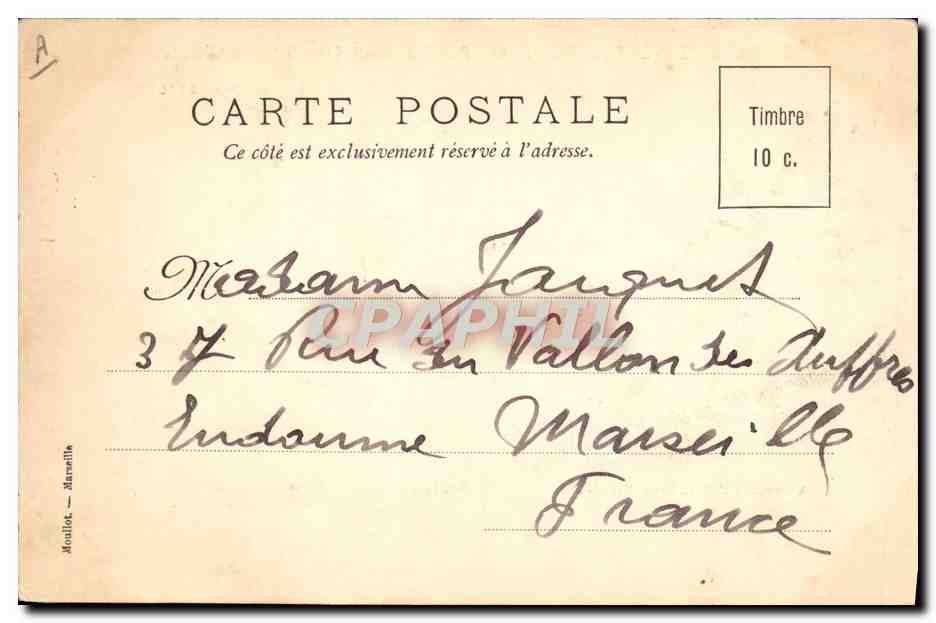 A
CARTE POSTALE
Ce côté est exclusivement réservé à l'adresse.
Timbre
10 c.
Madame Jauquet
37 Rue du Vallon des Auffres
Endoume Marseille
France
CPAPHIL
Mouillot. — Marseille